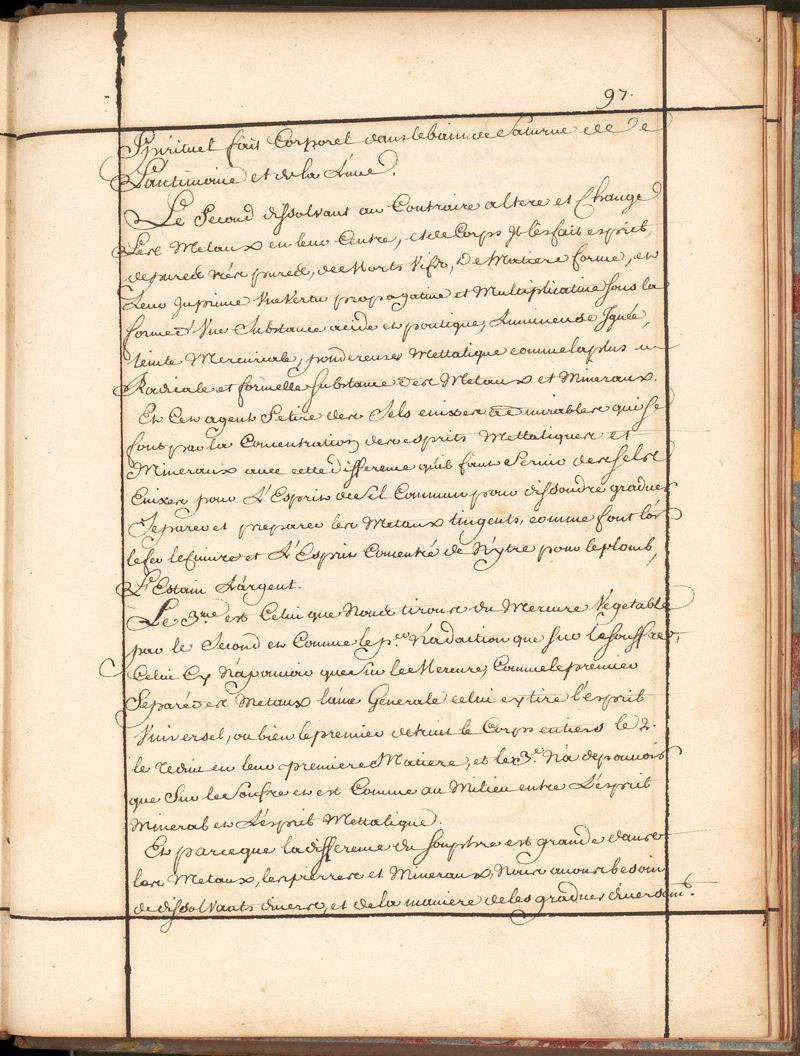 97.
Spirituel fait Corporel dans le bain de Saturne de
L'antimoine et de la Lune.
Le Second dissolvant au Contraire altere et Change
Les Metaux en leur Centre, et de Corps Jl les fait esprit,
de purs tres purs, de Morts Vifs, De Matiere forme, et
Leur Jnprime Vne Vertu propagatiue et Multiplicatiue Sous la
forme d'Vne Substance acide et pontique, Lumineuse Jgnée,
teinte Mercuriale, pondereuse Mettalique comme la plus
Radicale et formelle substance des Metaux et Mineraux.
Et Cet agent Se tire des Sels enixes admirables qui se
font par la Concentration des esprits Mettaliques et
Mineraux auec cette difference qu'il faut Seruir des sels
Enixes pour L'Esprit de Sel Commun pour dissoudre graduer
Separer et preparer les Metaux tingents, comme sont l'or
le fer le Cuiure et L'Esprit Concentré de Nytre pour le plomb,
L'Estain L'argent.
Le 3.me est Celui que Nous tirons du Mercure Vegetable
par le Second et Comme le p.er N'a d'action que sur le souffre,
Celui Cy N'a pouuoir que Sur le Mercure, Comme le premier
Separe des Metaux l'ame Generale celui cy tire l'esprit
Vniversel, ou bien le premier detruit le Corps entiers le 2.
le reduit en leur premiere Matiere, et le 3.e N'a de pouuoir
que Sur le Soufre et est Comme au Milieu entre L'esprit
Mineral et L'esprit Mettalique.
Et parce que la difference du souphre est grande dans
les Metaux, les pierres et Mineraux, Nous auons besoin
de dissolVants diuers, et de la maniere de les graduer diuersem.t